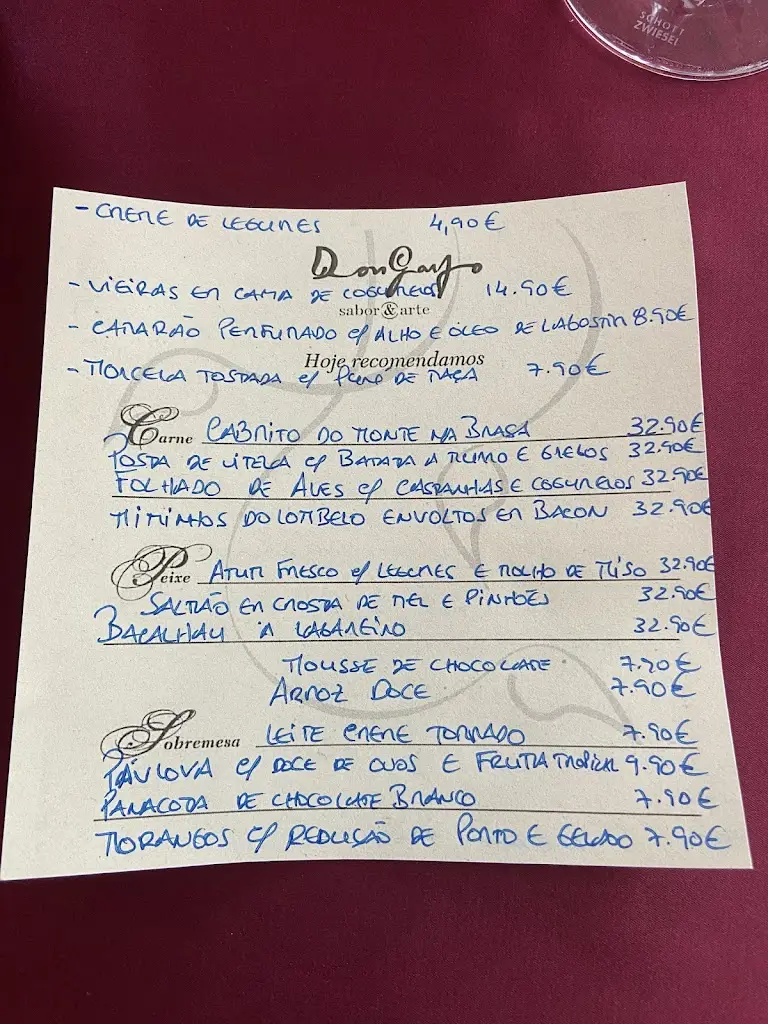 SCHOTT
ZWIESEL
- CREME DE LEGUMES 4,90€
Don Garfo
- VIEIRAS EM CAMA DE COGUMELOS 14.90€
sabor & arte
- CAMARÃO PERFUMADO c/ ALHO E ÓLEO DE LAGOSTIM 8.90€
Hoje recomendamos
- MORCELA TOSTADA c/ PURÉ DE MAÇA 7.90€
Carne CABRITO DO MONTE NA BRASA 32.90€
POSTA DE VITELA c/ BATATA A MURRO E GRELOS 32.90€
FOLHADO DE AVES c/ CASTANHAS E COGUMELOS 32.90€
MIMINHOS DO LOMBELO ENVOLTOS EM BACON 32.90€
Peixe ATUM FRESCO c/ LEGUMES E MOLHO DE MISO 32.90€
SALMÃO EM CROSTA DE MEL E PINHÕES 32.90€
BACALHAU À LAGAREIRO 32.90€
MOUSSE DE CHOCOLATE 7.90€
ARROZ DOCE 7.90€
Sobremesa LEITE CREME TORRADO 7.90€
PÁVLOVA c/ DOCE DE OVOS E FRUTA TROPICAL 9.90€
PANACOTA DE CHOCOLATE BRANCO 7.90€
MORANGOS c/ REDUÇÃO DE PORTO E GELADO 7.90€